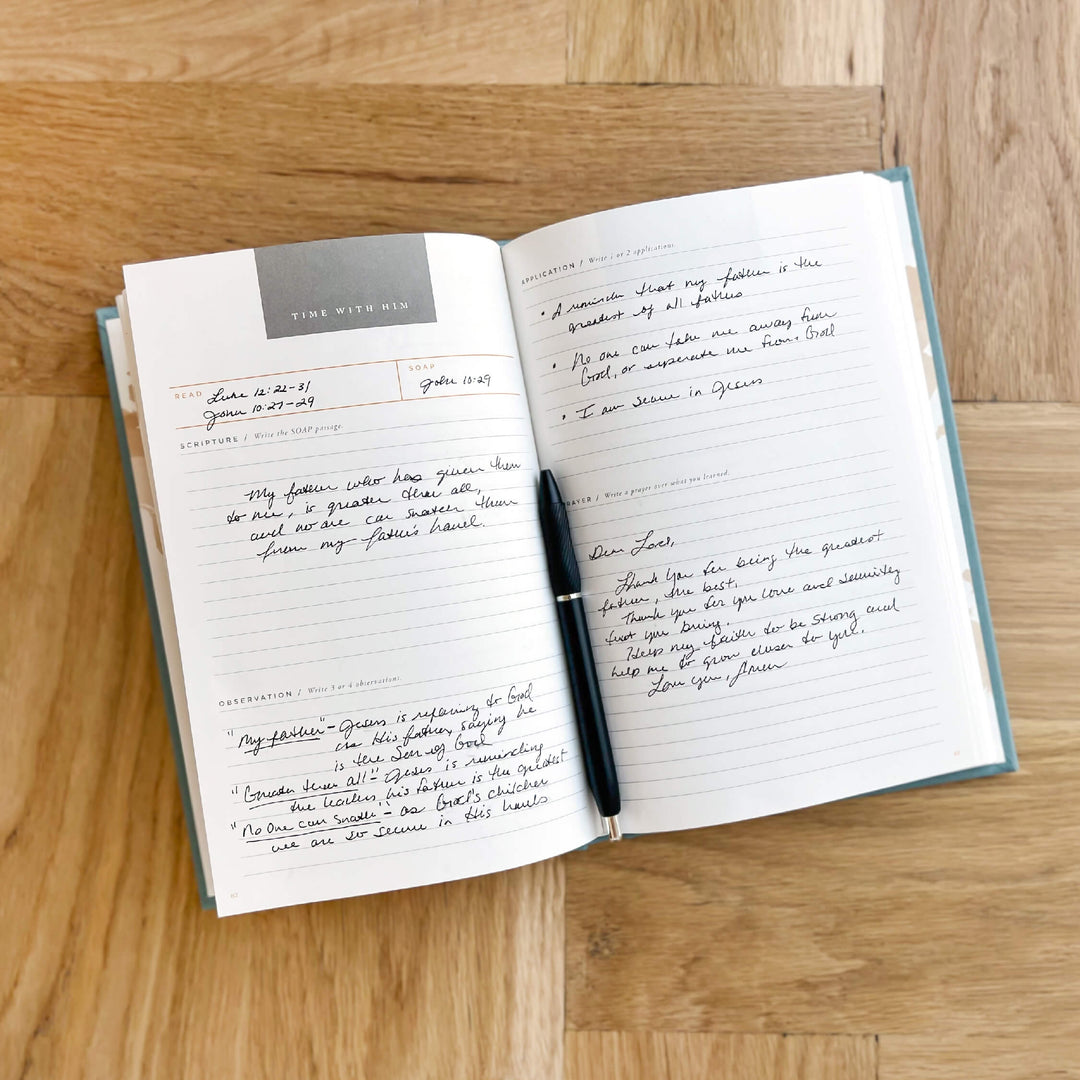 TIME WITH HIM
READ Luke 12:22-31
John 10:27-29
SOAP
John 10:29
SCRIPTURE / Write the SOAP passage.
My father who has given them
to me, is greater than all,
and no one can snatch them
from my father's hand.
OBSERVATION / Write 3 or 4 observations.
"My father" - Jesus is referring to God
as His father, saying he
is the Son of God
"Greater than all" - Jesus is reminding
the leaders his father is the greatest
"No One can snatch" - as God's children
we are so secure in His hands
APPLICATION / Write 1 or 2 applications.
• A reminder that my father is the
greatest of all fathers
• No one can take me away from
God, or seperate me from God
• I am secure in Jesus
RAYER / Write a prayer over what you learned.
Dear Lord,
Thank you for being the greatest
father, the best.
Thank you for you love and security
that you bring.
Help my faith to be strong and
help me to grow closer to you.
Love you, Amen